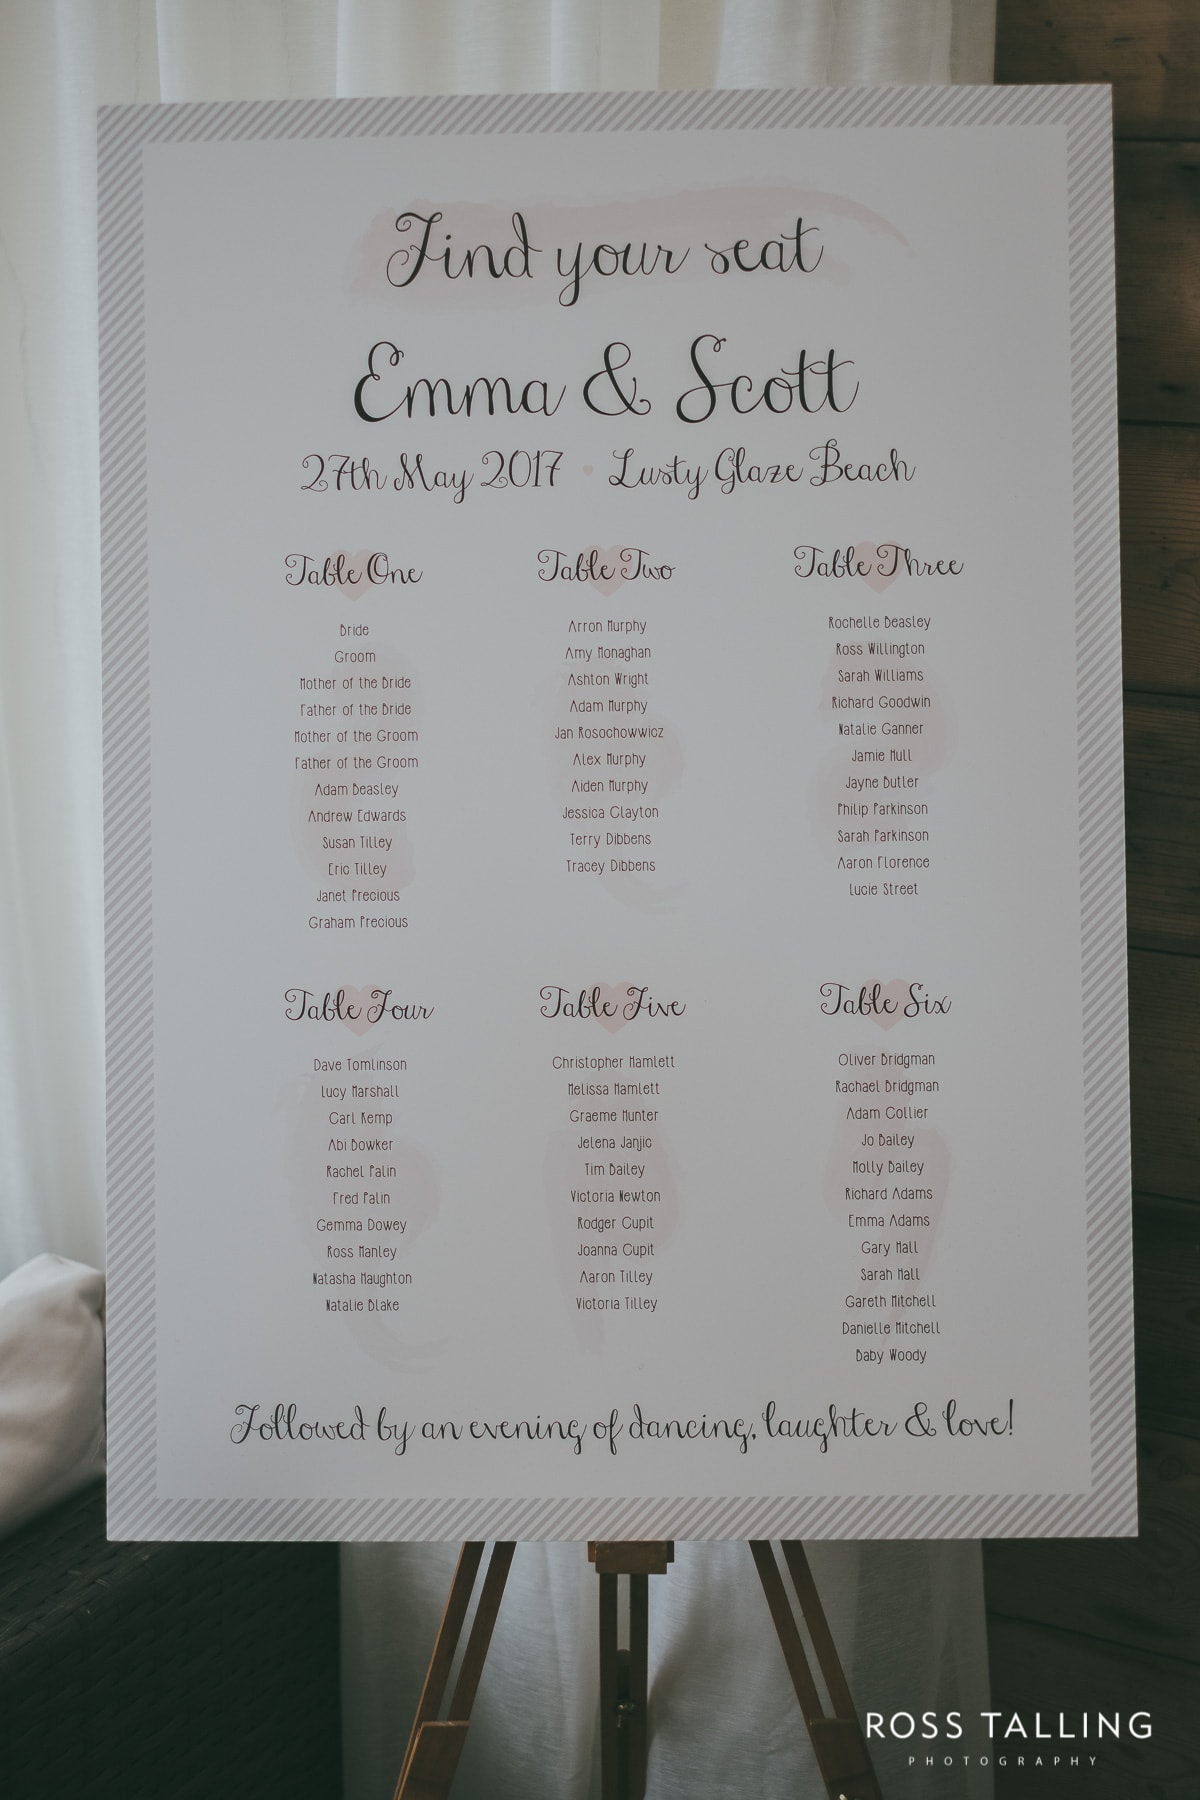 Find your seat
Emma & Scott
27th May 2017 Lusty Glaze Beach
Table One
Bride
Groom
Mother of the Bride
Father of the Bride
Mother of the Groom
Father of the Groom
Adam Beasley
Andrew Edwards
Susan Tilley
Eric Tilley
Janet Precious
Graham Precious
Table Two
Arron Murphy
Amy Monaghan
Ashton Wright
Adam Murphy
Jan Rosochowwicz
Alex Murphy
Aiden Murphy
Jessica Clayton
Terry Dibbens
Tracey Dibbens
Table Three
Rochelle Beasley
Ross Willington
Sarah Williams
Richard Goodwin
Natalie Ganner
Jamie Hull
Jayne Butler
Philip Parkinson
Sarah Parkinson
Aaron Florence
Lucie Street
Table Four
Dave Tomlinson
Lucy Marshall
Carl Kemp
Abi Bowker
Rachel Palin
Fred Palin
Gemma Dowey
Ross Manley
Natasha Haughton
Natalie Blake
Table Five
Christopher Hamlett
Melissa Hamlett
Graeme Hunter
Jelena Janjic
Tim Bailey
Victoria Newton
Rodger Cupit
Joanna Cupit
Aaron Tilley
Victoria Tilley
Table Six
Oliver Bridgman
Rachael Bridgman
Adam Collier
Jo Bailey
Molly Bailey
Richard Adams
Emma Adams
Gary Hall
Sarah Hall
Gareth Mitchell
Danielle Mitchell
Baby Woody
Followed by an evening of dancing, laughter & love!
ROSS TALLING
PHOTOGRAPHY